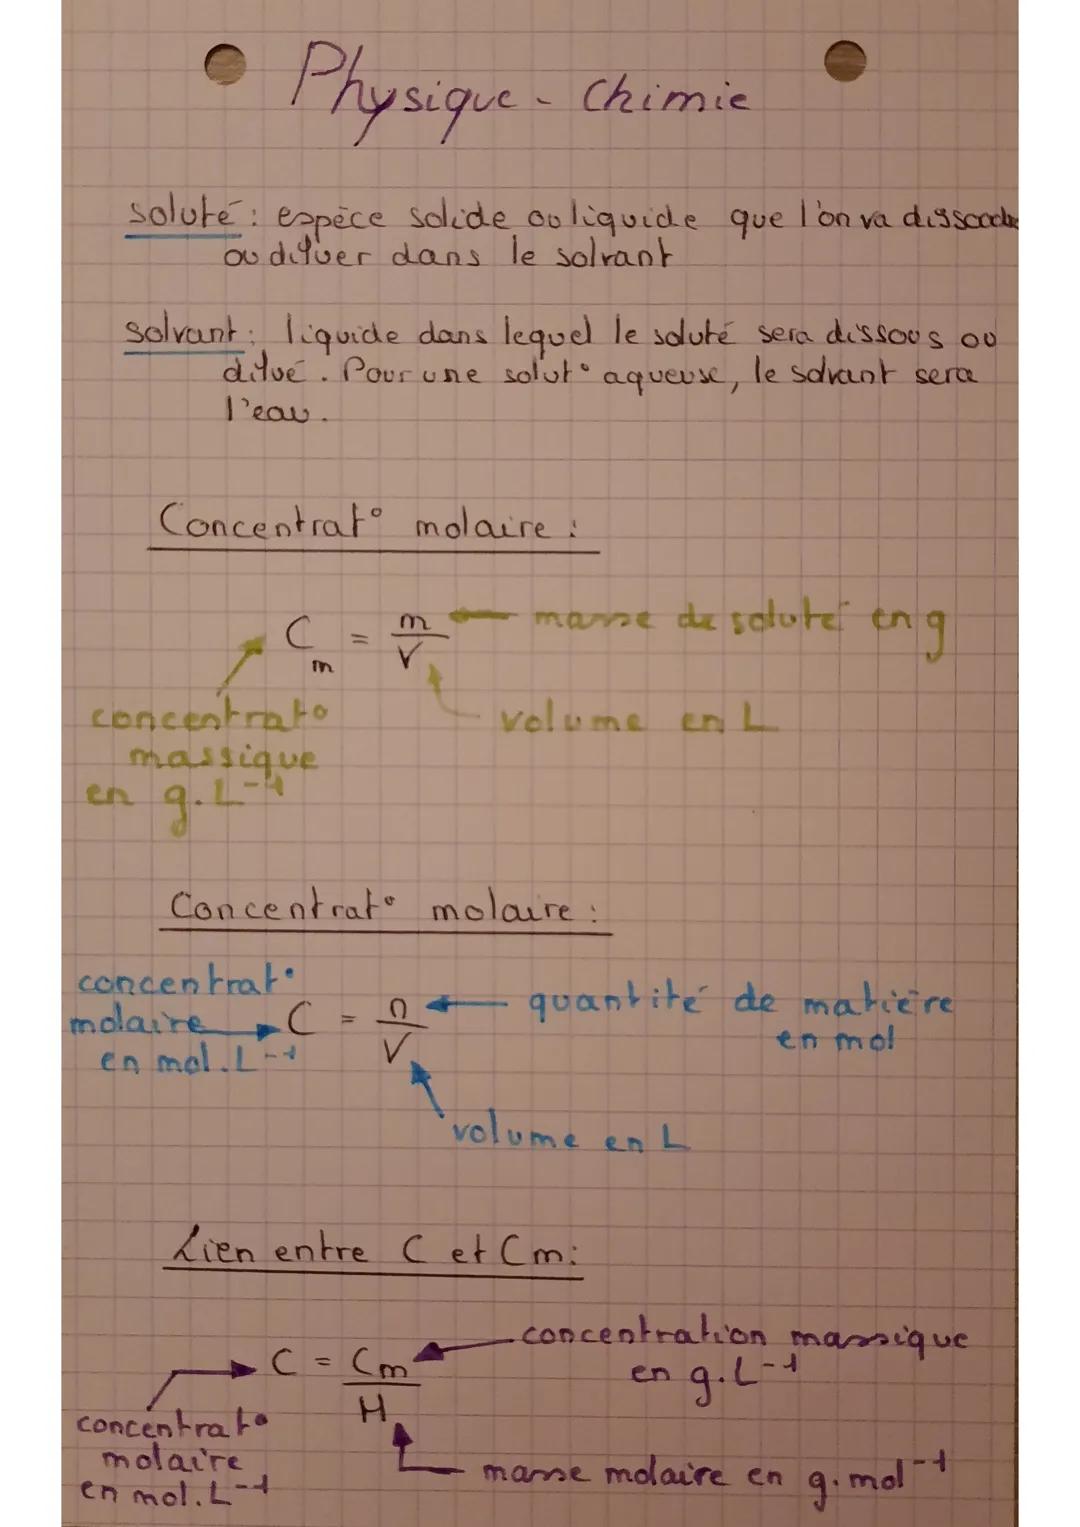 Physique - Chimie
soluté : espèce solide ou liquide que l'on va dissoudre
ou diluer dans le solvant
solvant : liquide dans lequel le soluté sera dissous ou
dilué. Pour une solut° aqueuse, le solvant sera
l'eau.
Concentrat° molaire :
C m = m / V ← masse de soluté en g
volume en L
concentrat°
massique
en g.L⁻¹
Concentrat° molaire :
concentrat°
molaire → C = n / V ← quantité de matière
en mol.L⁻¹
en mol
volume en L
Lien entre C et Cm :
C = Cm / M
concentration massique
en g.L⁻¹
concentrat°
molaire
en mol.L⁻¹
masse molaire en g.mol⁻¹